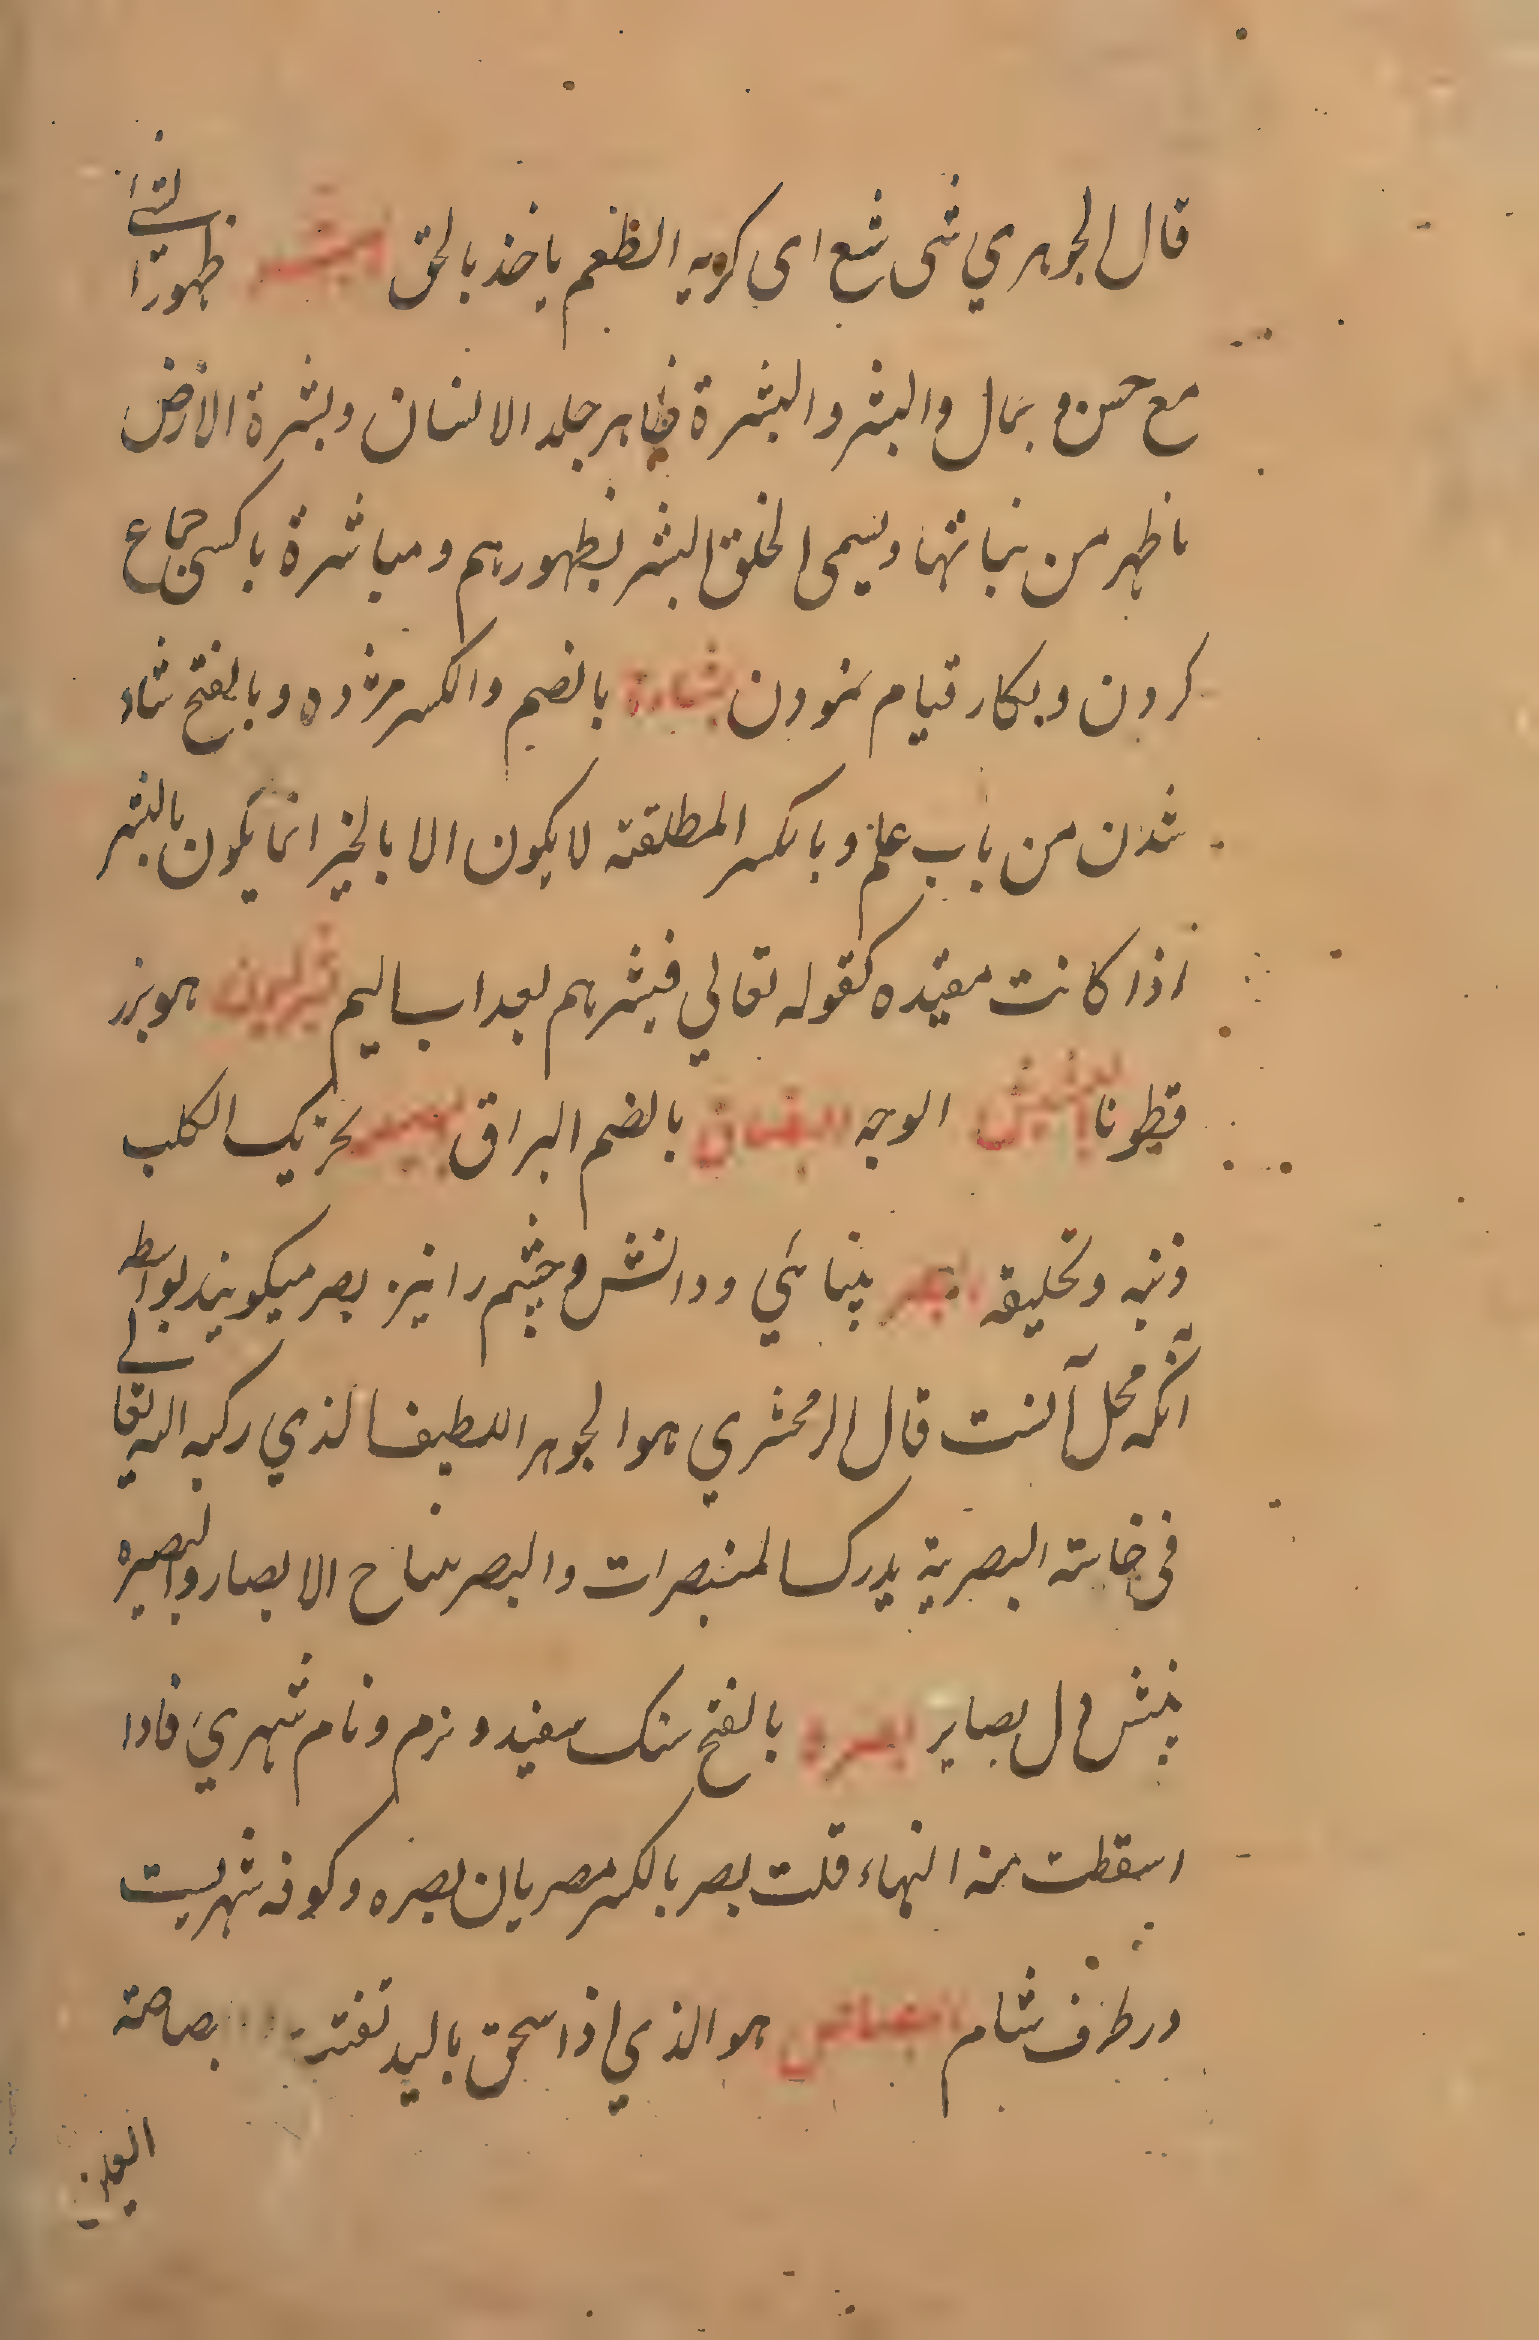 قال الجوهري شی شع ای کریه الظعم یاخذ بالحق البشر ظهور الشیٔ
مع حسن و جمال والبشر والبشرة ظاهر جلد الانسان وبشرة الارض
ما ظهر من نباتها ویسمی الخلق البشر لظهورهم و مباشرة باکسی جماع
کردن و بکار قیام نمودن بشارة بالضم والکسر مژده و بالفتح شاد
شدن من باب علم و بالکسر المطلقته لا یکون الا بالخیر انما یکون بالشر
اذا کانت مقیده کقوله تعالی فبشرهم بعذاب الیم هو بزر
قطونا الوجه بالضم البراق تحریک الکلب
ذنبه و تحلیقه البصر بینائی و دانش و چشم را نیز بصر میکویند بواسطه
آنکه محل آنست قال الزمخشري هو الجوهر اللطیف الذي رکبه الله تعالی
في حاسته البصریة یدرک المبصرات والبصر الابصار والبصیره
بینش دل بصایر بصره بالفتح سنک سفید و نرم و نام شهري فاذا
اسقطت منه الهاء قلت بصر بالکسر مصریان بصره و کوفه شهریست
در طرف شام هو الذي اذا سحق بالید تفتت بصاصة
العین